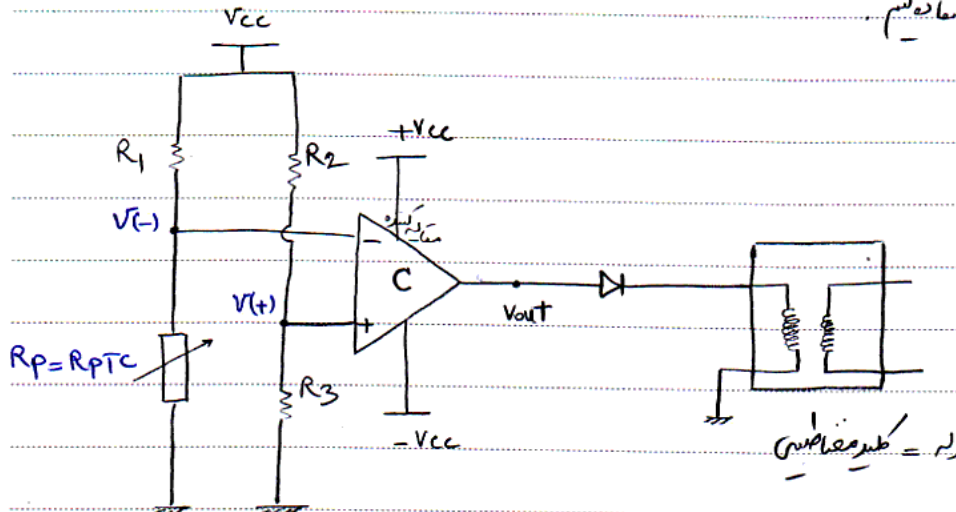 Vcc
R1
R2
+Vcc
مقایسه کننده
V(-)
-
C
V(+)
+
Vout
Rp=RpTC
R3
-Vcc
رله = کلید مغناطیسی